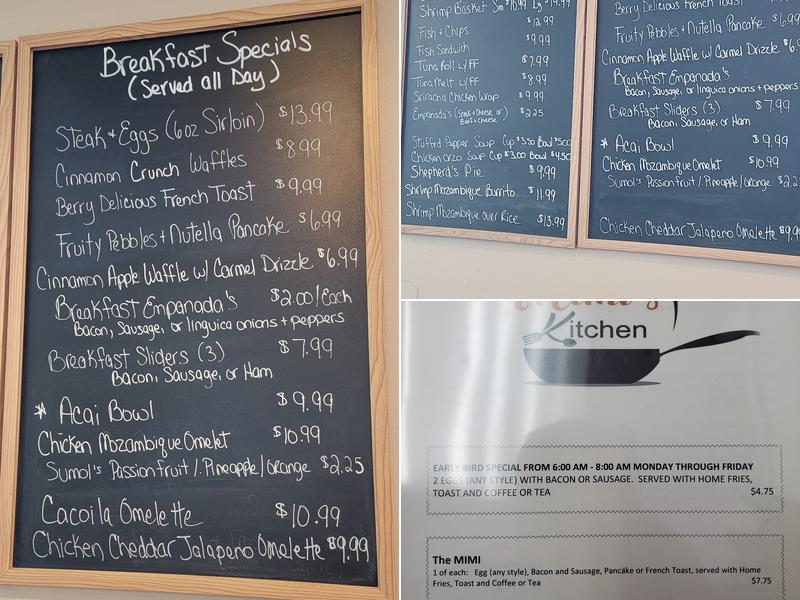 Breakfast Specials
(Served all Day)
Steak + Eggs (6oz Sirloin) $13.99
Cinnamon Crunch Waffles $8.99
Berry Delicious French Toast $9.99
Fruity Pebbles + Nutella Pancake $6.99
Cinnamon Apple Waffle w/ Carmel Drizzle $6.99
Breakfast Empanada's $2.00/Each
Bacon, Sausage, or linguica onions + peppers
Breakfast Sliders (3) $7.99
Bacon, Sausage, or Ham
* Acai Bowl $9.99
Chicken Mozambique Omelet $10.99
Sumol's Passionfruit/Pineapple/orange $2.25
Cacoila Omelette $10.99
Chicken Cheddar Jalapeno Omelette $9.99
Shrimp Basket Sm $10.99 Lg $14.99
Fish + Chips $12.99
Fish Sandwich $9.99
Tuna Roll w/FF $7.99
Tuna Melt w/FF $8.99
Sriracha Chicken Wrap $9.99
Empanada's $2.25
Stuffed Pepper Soup Cup $3.50 Bowl $5.00
Chicken Orzo Soup Cup $3.00 Bowl $4.50
Shepherd's Pie $9.99
Shrimp Mozambique Burrito $11.99
Shrimp Mozambique over Rice $13.99
Berry Delicious French Toast
Fruity Pebbles + Nutella Pancake $6.99
Cinnamon Apple Waffle w/ Carmel Drizzle $6.
Breakfast Empanada's
Bacon, Sausage, or linguica onions + peppers
Breakfast Sliders (3) $7.99
Bacon, Sausage, or Ham
* Acai Bowl $9.99
Chicken Mozambique Omelet $10.99
Sumol's Passionfruit/Pineapple/orange $2.2
Chicken Cheddar Jalapeno Omelette $9.9
Kitchen
EARLY BIRD SPECIAL FROM 6:00 AM - 8:00 AM MONDAY THROUGH FRIDAY
2 EGGS (ANY STYLE) WITH BACON OR SAUSAGE. SERVED WITH HOME FRIES,
TOAST AND COFFEE OR TEA $4.75
The MIMI
1 of each: Egg (any style), Bacon and Sausage, Pancake or French Toast, served with Home
Fries, Toast and Coffee or Tea $7.75